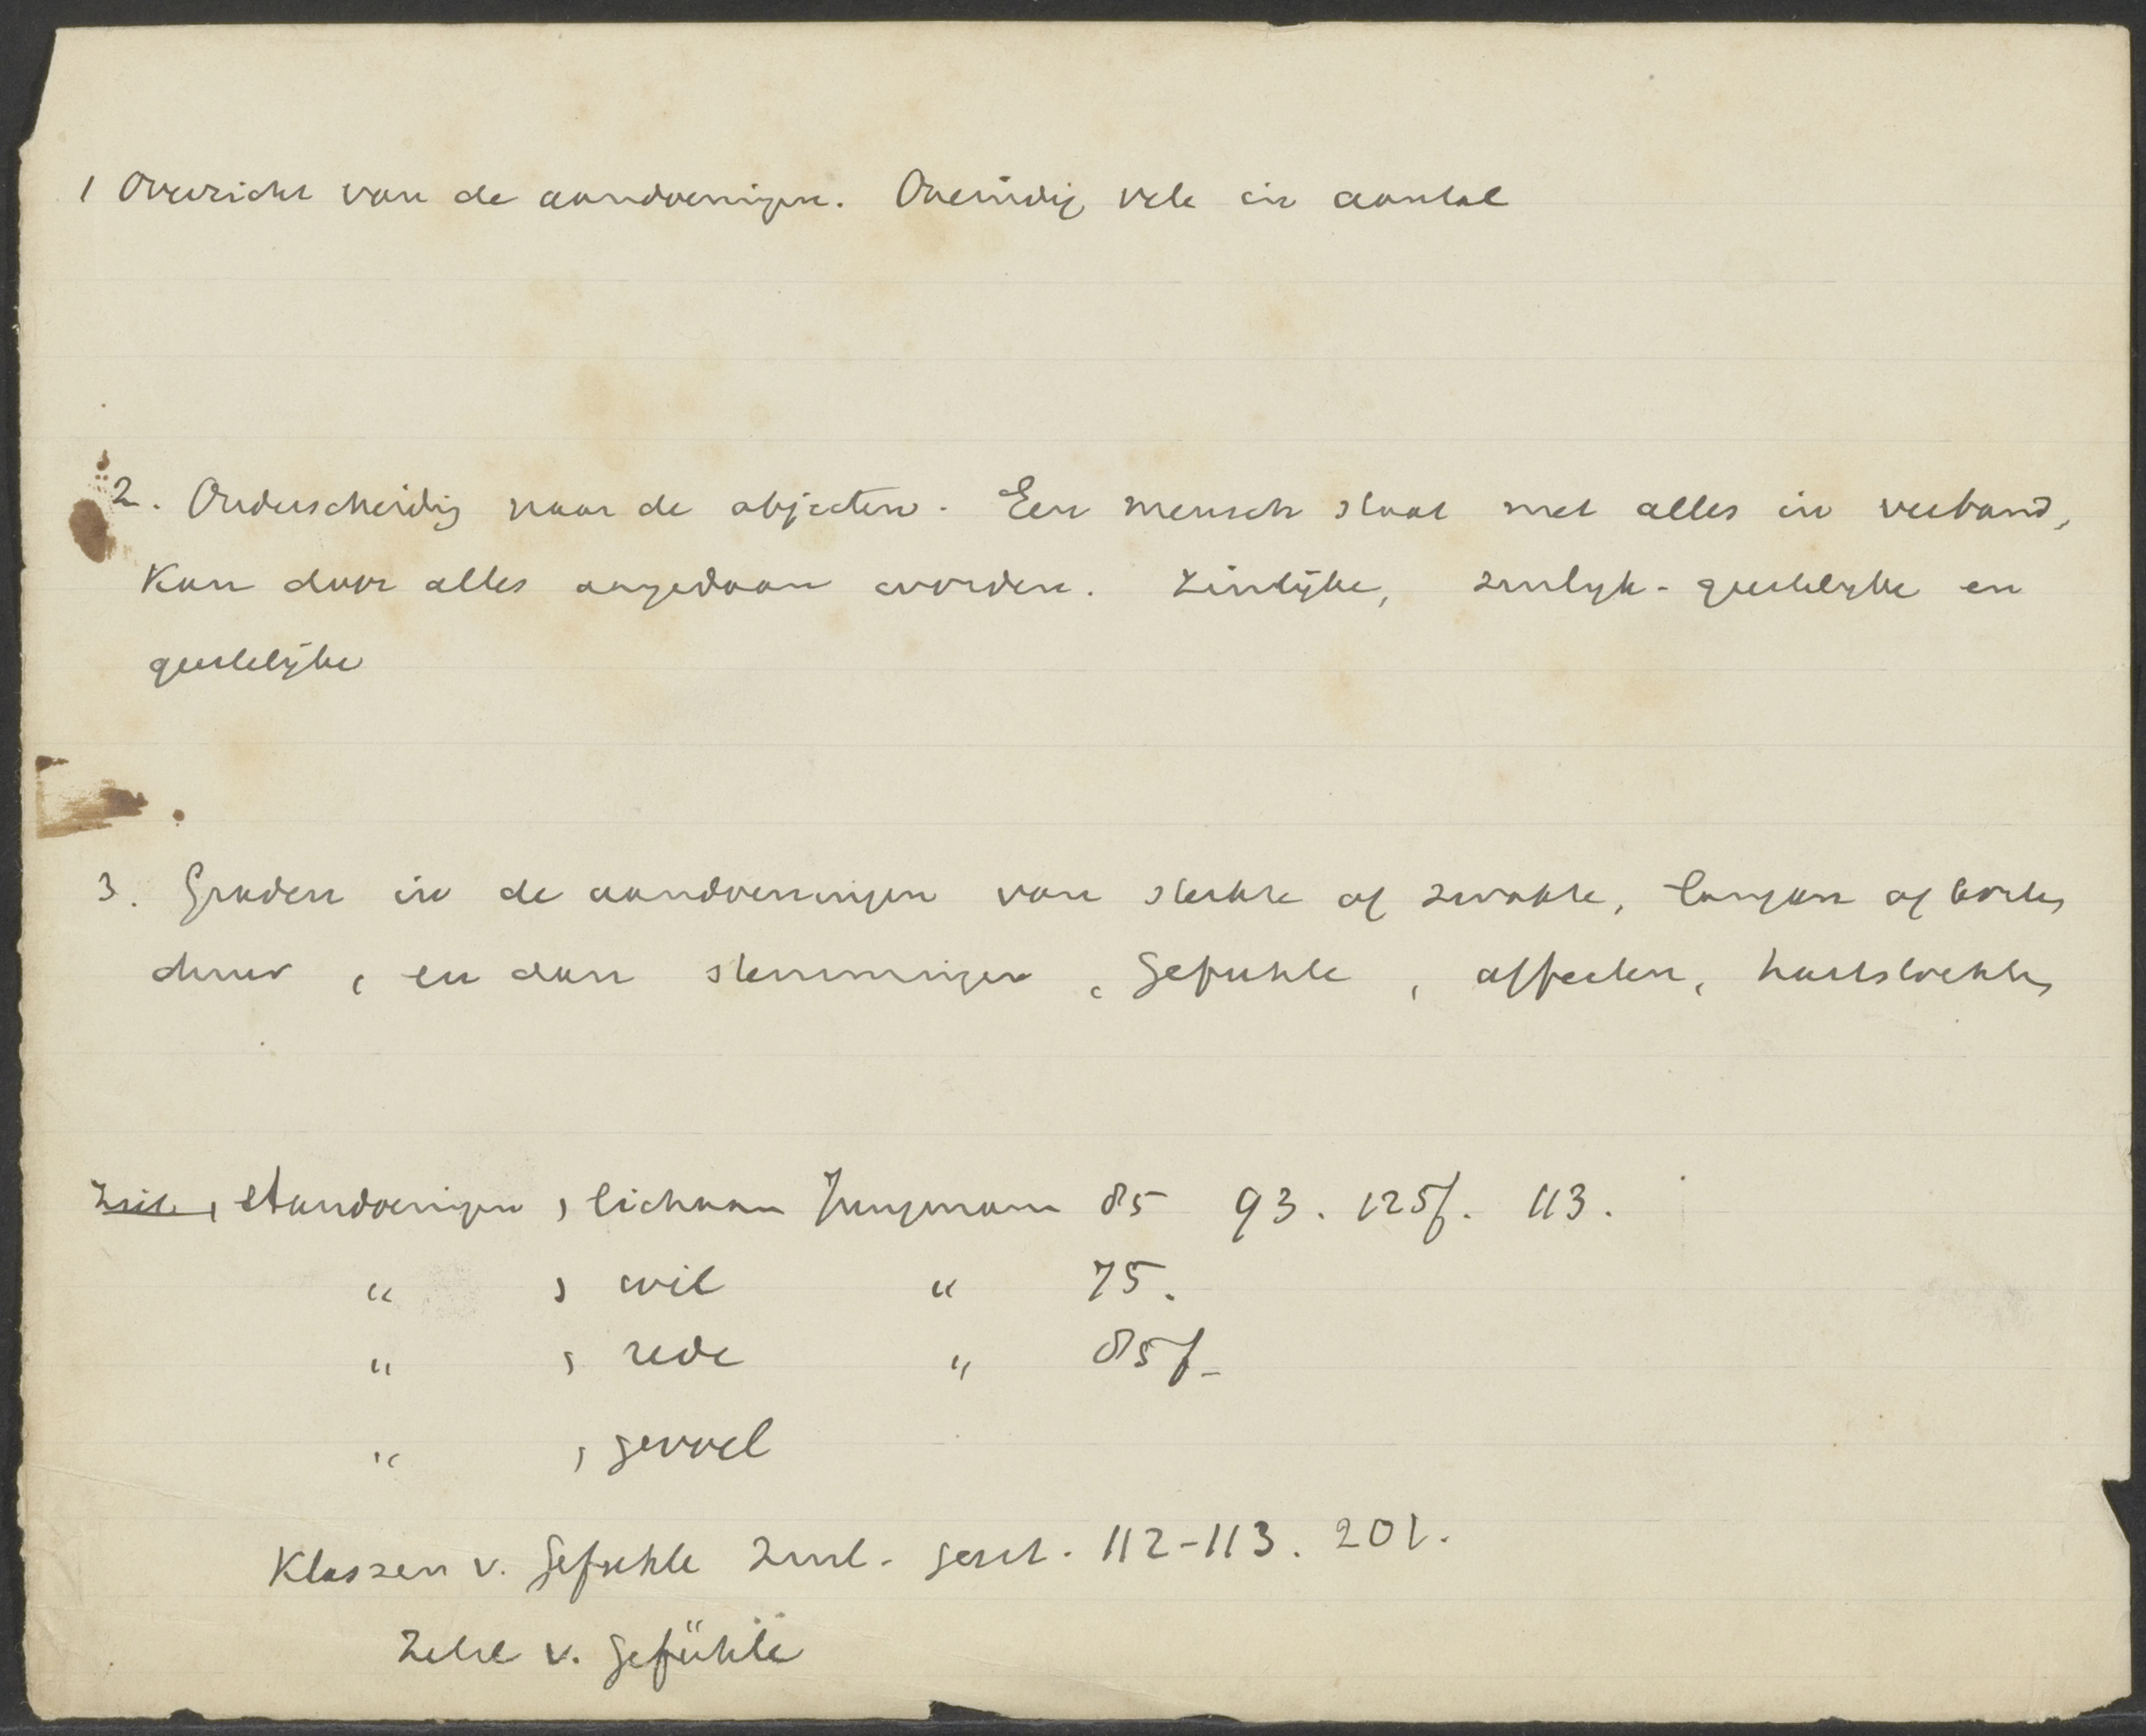 1 Overzicht van de aandoeningen. Oneindig vele in aantal
2. Onderscheidig naar de objecten. Een mensch staat met alles in verband,
Kan door alles aangedaan worden. Zinlijke, zinlijk-geestelijke en
geestelijke
3. Graden in de aandoeningen van sterkte of zwakte, langen of korten
duur, en dan stemmingen, Gefuhle, affecten, hartstochten
Aandoeningen, lichaam Jungmann 85 93. 125f. 113.
" , wil " 75.
" , rede " 85f.
" , gevoel
Klassen v. Gefuhle zinl. geest. 112-113. 201.
v. Gefühle